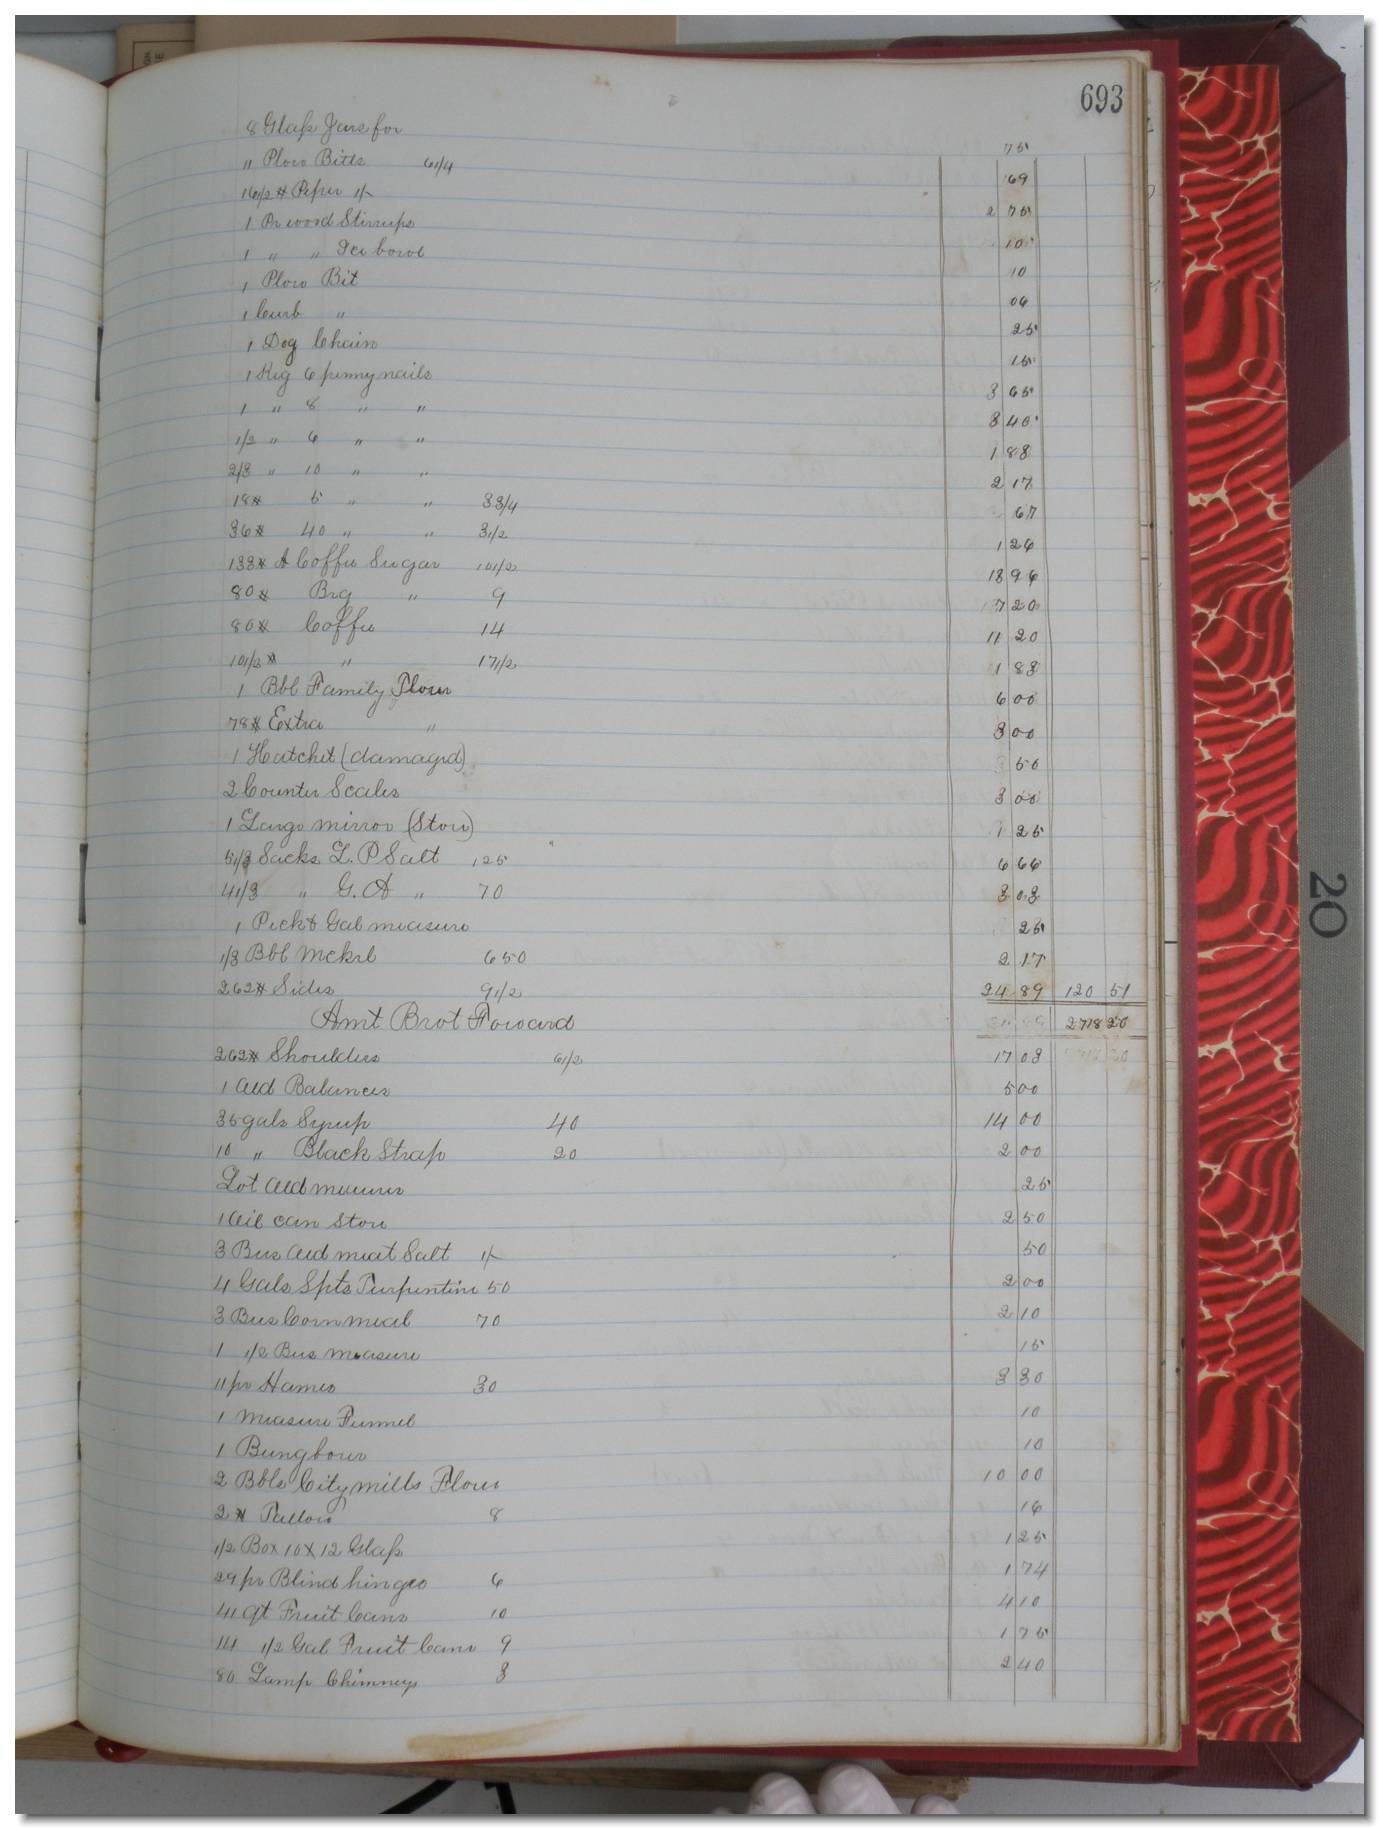 693
8 Glass Jars for 75
11 Plow Bitts 6 1/4 69
16 1/2 # Peper 1/- 2 75
1 Pr wood Stirrups 10
1 " " bowl 10
1 Plow Bit 06
1 Curb " 25
1 Dog Chain 15
1 Keg 6 penny nails 3 65
1 " 8 " " 3 40
1/2 " 6 " " 1 83
2/3 " 10 " " 2 17
18# 5 " " 3 3/4 67
36# 40 " " 3 1/2 1 26
133# A Coffee Sugar 10 1/2 13 96
80# Brg " 9 7 20
80# Coffee 14 11 20
10 1/2 # " 17 1/2 1 83
1 Bbl Family Flour 6 00
78# Extra " 3 00
1 Hatchet (damagd) 50
2 Counter Scales 3 00
1 Large mirror (Store) 1 25
5 1/3 Sacks L. P Salt 125 6 66
4 1/3 " G. A " 70 3 03
1 Peck & Gal measure 25
1/3 Bbl Mckrl 6 50 2 17
262# Sides 9 1/2 24 89 120 51
Amt Brot Forward 2718 20
262# Shoulders 6 1/2 17 03
1 Old Balances 5 00
35 gals Syrup 40 14 00
10 " Black Strap 20 2 00
Lot Old measures 25
1 Oil can Store 2 50
3 Bus Old meat Salt 1/- 50
4 Gals Spts Turpentine 50 2 00
3 Bus Corn meal 70 2 10
1 1/2 Bus measure 15
11 pr Hames 30 3 30
1 Measure Funnel 10
1 Bungbour 10
2 Bbls City mills Flour 10 00
2# Tallow 8 16
1/2 Box 10 X 12 Glass 1 25
29 pr Blind hinges 6 1 74
41 qt Fruit Cans 10 4 10
14 1/2 Gal Fruit Cans 9 1 75
80 Lamp Chimneys 3 2 40
20